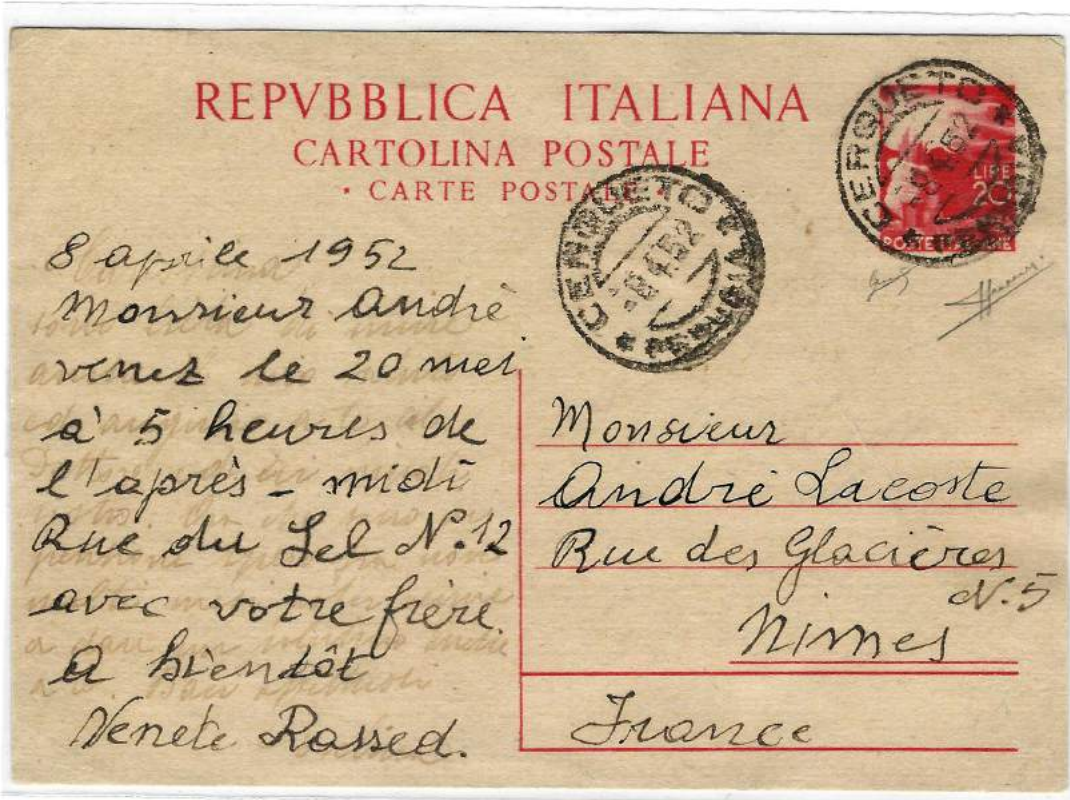 REPVBBLICA ITALIANA
CARTOLINA POSTALE
• CARTE POSTALE
CERQUETO * PERUGIA *
-8.4.52
CERQUETO * PERUGIA *
-8.4.52
LIRE
20
POSTE ITALIANE
8 aprile 1952
Monsieur André
venez le 20 mai
à 5 heures de
l'après-midi
Rue du Sel N.12
avec votre frère
a bientôt
Venete Rossed.
Monsieur
André Lacoste
Rue des Glacières
N.5
Nimes
France